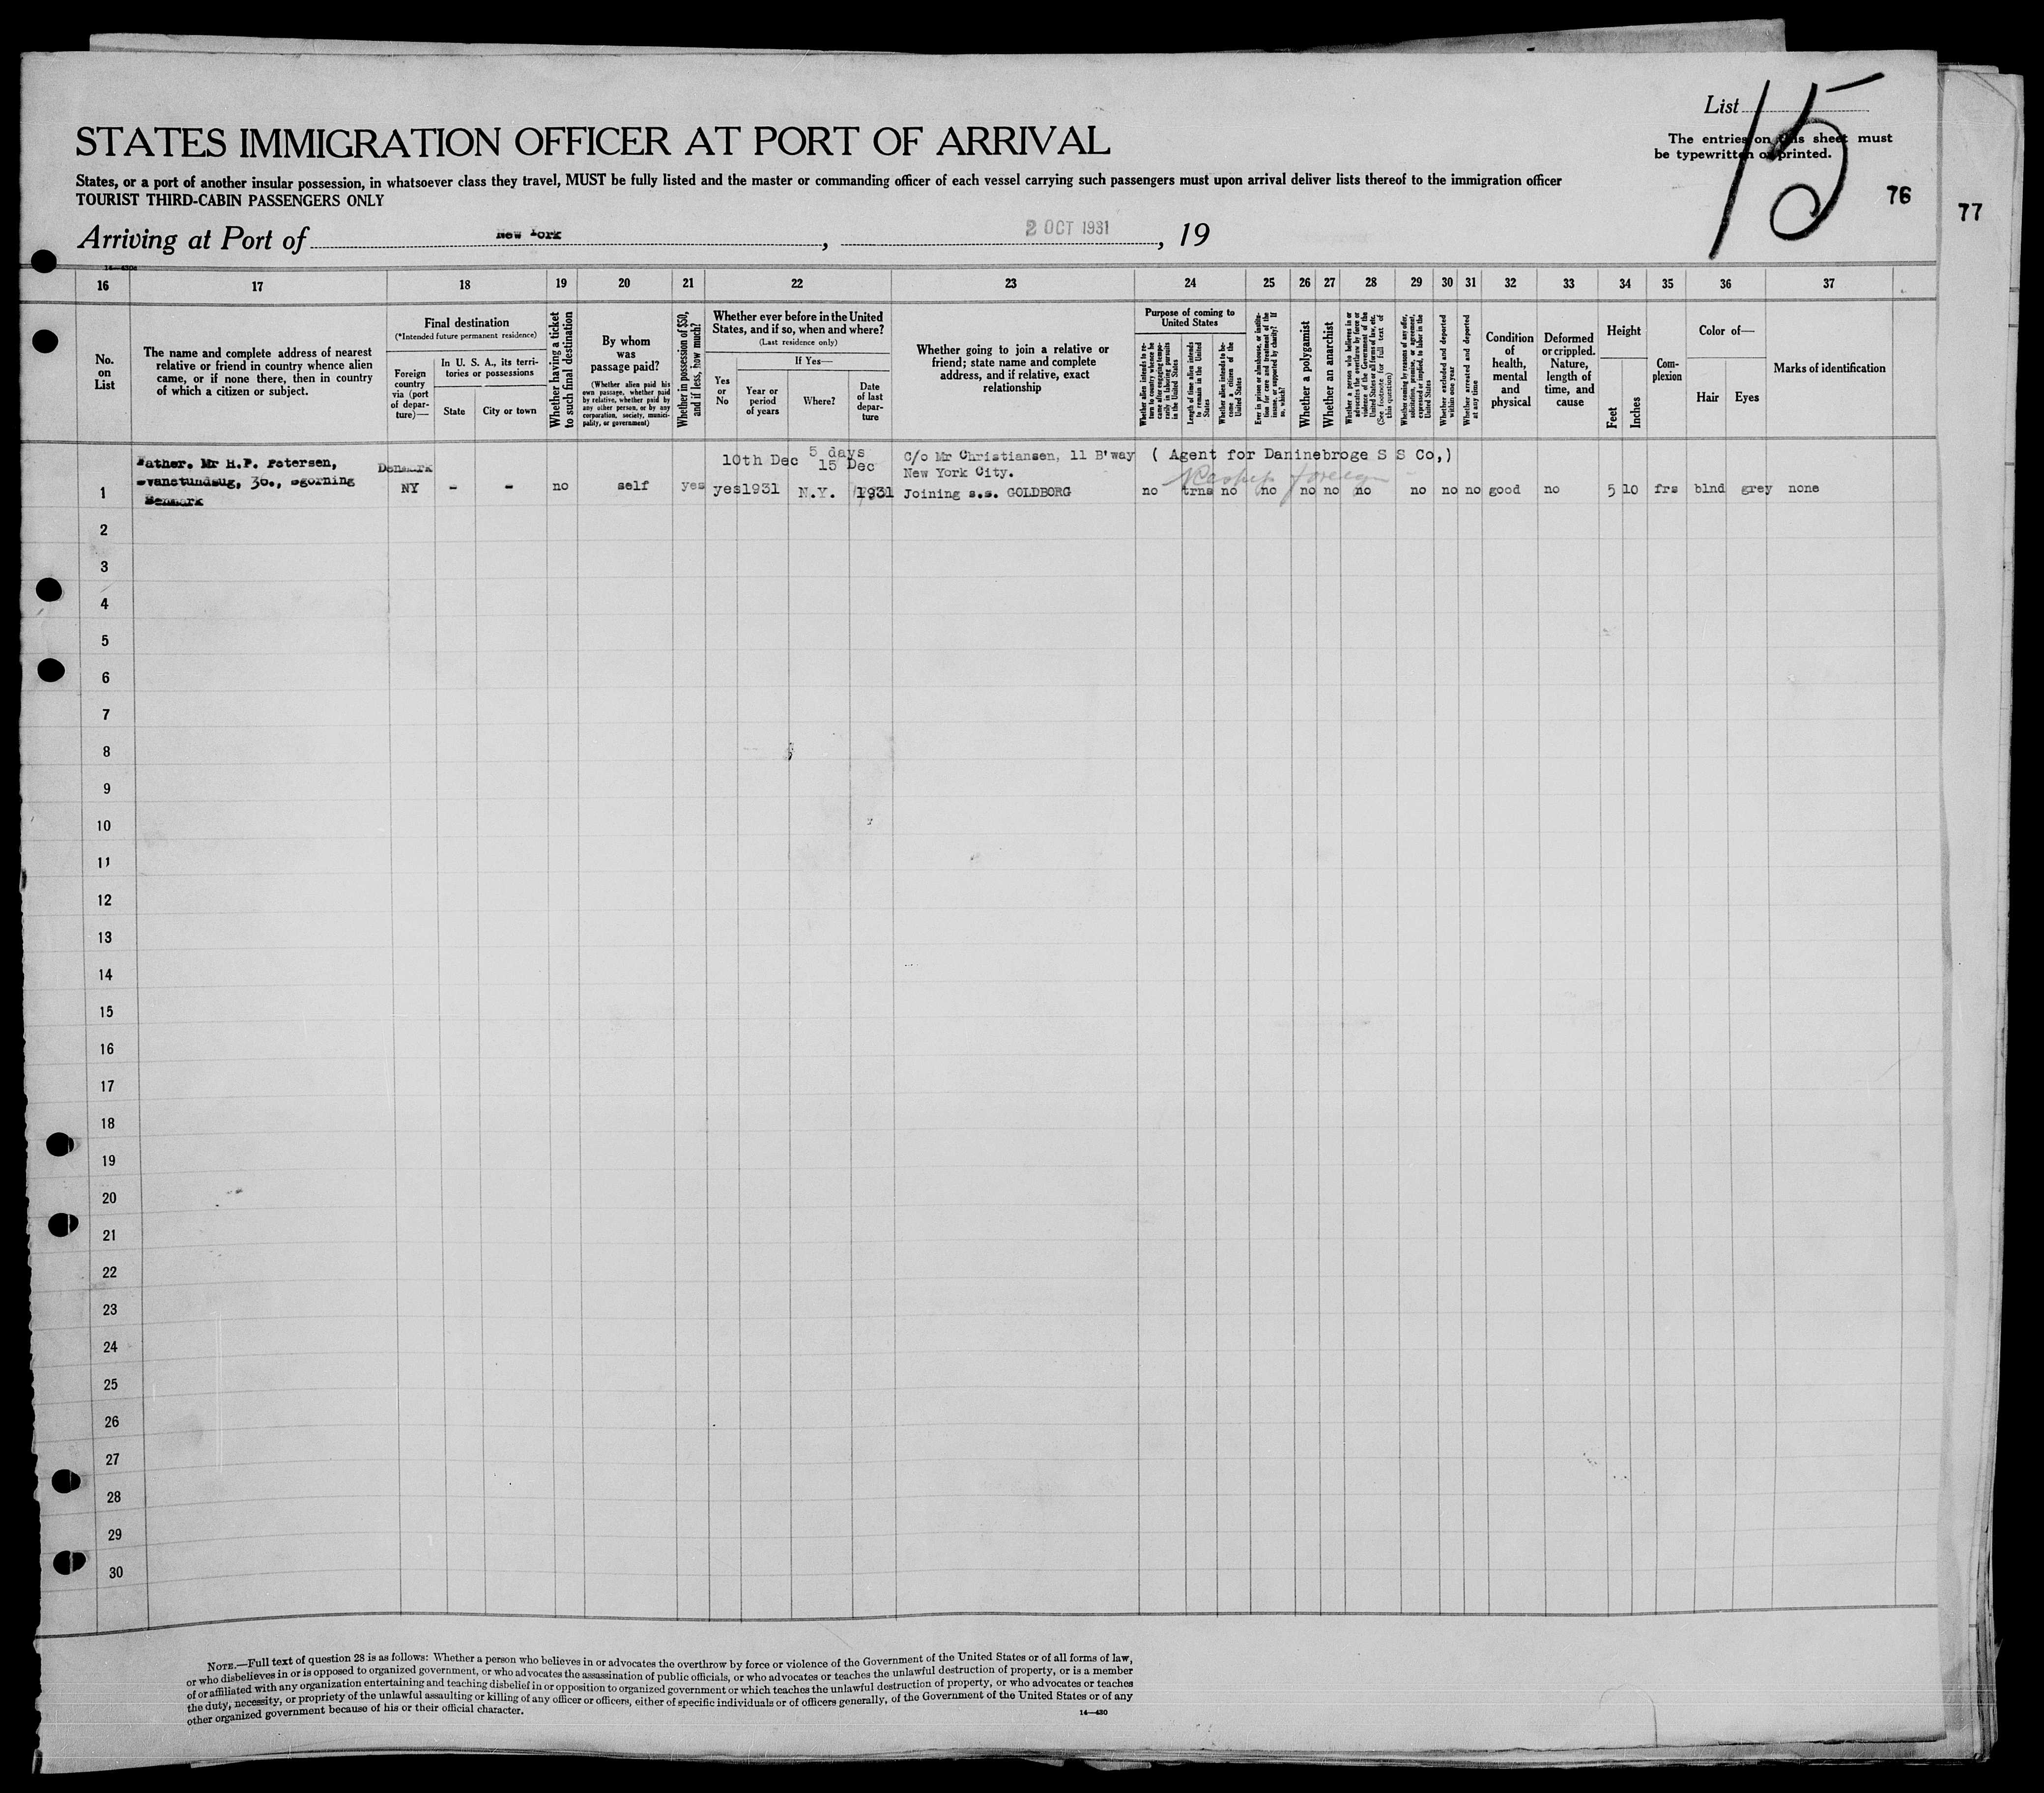 List 15
STATES IMMIGRATION OFFICER AT PORT OF ARRIVAL
The entries on this sheet must
be typewritten or printed.
States, or a port of another insular possession, in whatsoever class they travel, MUST be fully listed and the master or commanding officer of each vessel carrying such passengers must upon arrival deliver lists thereof to the immigration officer
TOURIST THIRD-CABIN PASSENGERS ONLY
76
77
Arriving at Port of New York, 2 OCT 1931, 19
16 17 18 19 20 21 22 23 24 25 26 27 28 29 30 31 32 33 34 35 36 37
No. on List
The name and complete address of nearest
relative or friend in country whence alien
came, or if none there, then in country
of which a citizen or subject.
Final destination
(*Intended future permanent residence)
Foreign country via (port of departure)—
In U. S. A., its territories or possessions
State
City or town
Whether having a ticket to such final destination
By whom was passage paid?
(Whether alien paid his own passage, whether paid by relative, whether paid by any other person, or by any corporation, society, municipality, or government)
Whether in possession of $50, and if less, how much?
Whether ever before in the United
States, and if so, when and where?
(Last residence only)
Yes or No
If Yes—
Year or period of years
Where?
Date of last departure
Whether going to join a relative or
friend; state name and complete
address, and if relative, exact
relationship
Purpose of coming to United States
Whether alien intends to return to country whence he came after engaging temporarily in laboring pursuits in the United States
Length of time alien intends to remain in the United States
Whether alien intends to become a citizen of the United States
Ever in prison or almshouse, or institution for care and treatment of the insane, or supported by charity? If so, which?
Whether a polygamist
Whether an anarchist
Whether a person who believes in or advocates the overthrow by force or violence of the Government of the United States or all forms of law, etc. (See footnote for full text of this question)
Whether coming by reasons of any offer, solicitation, promise, or agreement, expressed or implied, to labor in the United States
Whether excluded and deported within one year
Whether arrested and deported at any time
Condition of health, mental and physical
Deformed or crippled. Nature, length of time, and cause
Height
Feet
Inches
Complexion
Color of—
Hair
Eyes
Marks of identification
Father. Mr H.P. Petersen,
Denmark
10th Dec 5 days 15 Dec
C/o Mr Christiansen, 11 B'way ( Agent for Daninebroge S S Co,)
New York City.
1 NY - - no self yes yes 1931 N.Y. 1931 Joining s.s. GOLDBORG no trns no no no no no no no no good no 5 10 frs blnd grey none
Denmark
2
3
4
5
6
7
8
9
10
11
12
13
14
15
16
17
18
19
20
21
22
23
24
25
26
27
28
29
30
NOTE.—Full text of question 28 is as follows: Whether a person who believes in or advocates the overthrow by force or violence of the Government of the United States or of all forms of law,
or who disbelieves in or is opposed to organized government, or who advocates the assassination of public officials, or who advocates or teaches the unlawful destruction of property, or is a member
of or affiliated with any organization entertaining and teaching disbelief in or opposition to organized government or which teaches the unlawful destruction of property, or who advocates or teaches
the duty, necessity, or propriety of the unlawful assaulting or killing of any officer or officers, either of specific individuals or of officers generally, of the Government of the United States or of any
other organized government because of his or their official character.
14—430